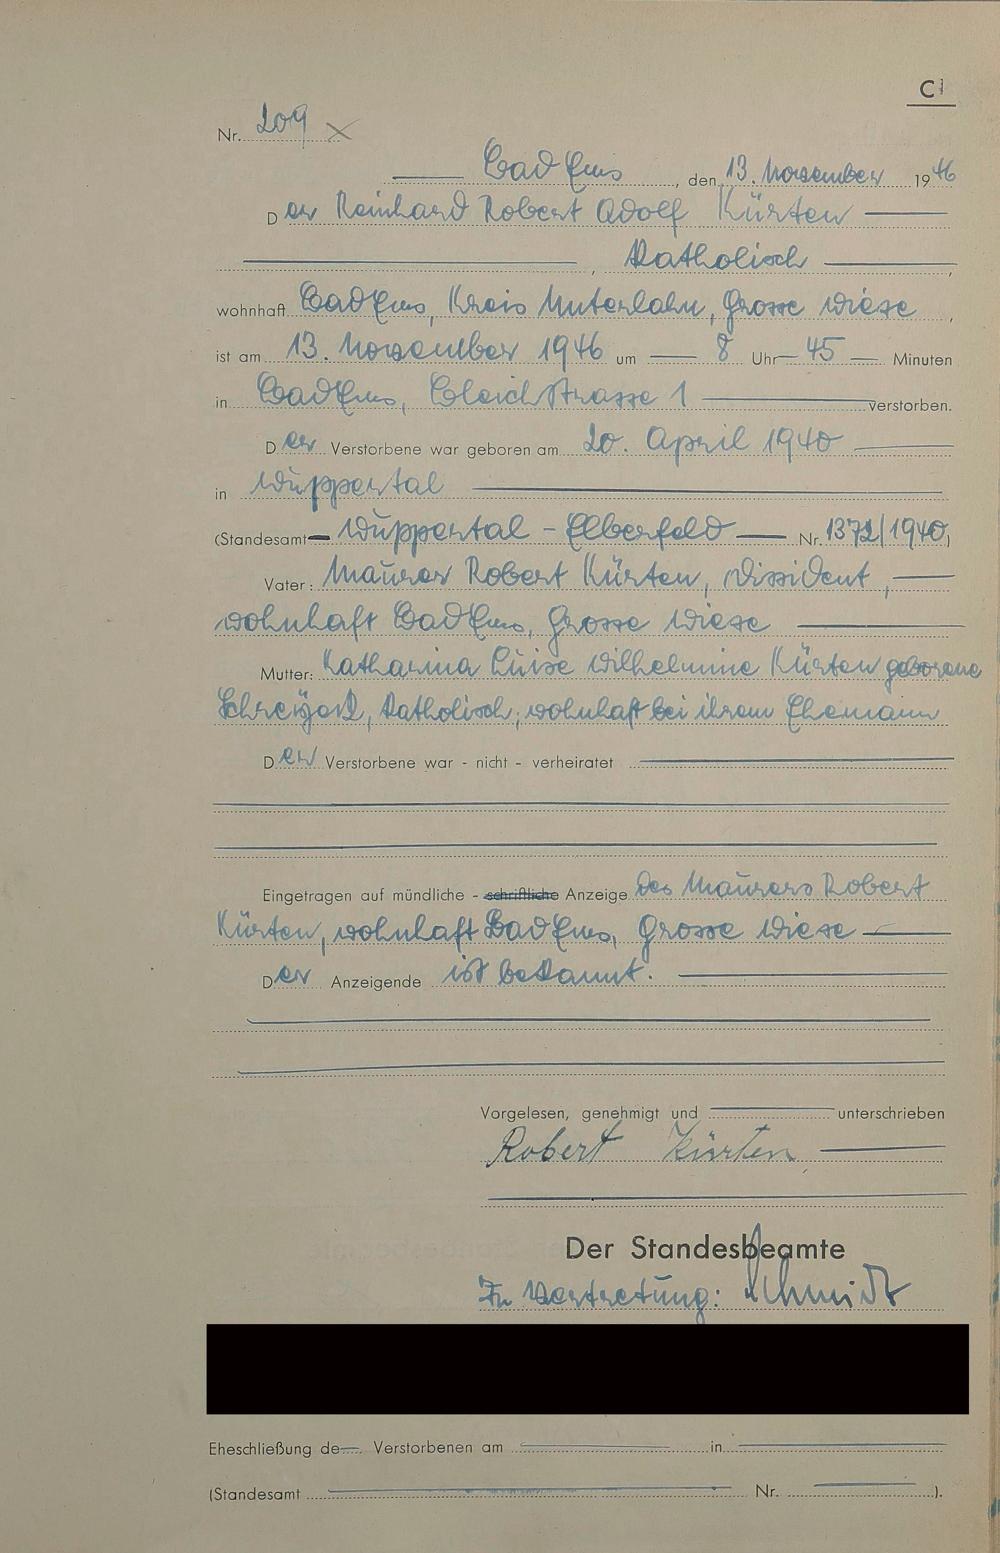 C
Nr. 209
Bad Ems, den 13. November 1946
Der Reinhard Robert Adolf Kürten
, Katholisch,
wohnhaft Bad Ems, Kreis Unterlahn, Grosse Wiese,
ist am 13. November 1946 um 8 Uhr 45 Minuten
in Bad Ems, Bleichstrasse 1 verstorben.
Der Verstorbene war geboren am 20. April 1940
in Wuppertal
(Standesamt Wuppertal - Elberfeld Nr. 1372/1940)
Vater: Maurer Robert Kürten, Dissident,
wohnhaft Bad Ems, Grosse Wiese
Mutter: Katharina Luise Wilhelmine Kürten geborene
Katholisch, wohnhaft bei ihrem Ehemann
Der Verstorbene war - nicht - verheiratet
Eingetragen auf mündliche - schriftliche Anzeige des Maurers Robert
Kürten, wohnhaft Bad Ems, Grosse Wiese
Der Anzeigende ist bekannt.
Vorgelesen, genehmigt und unterschrieben
Robert Kürten
Der Standesbeamte
In Vertretung: Schmidt
Eheschließung de Verstorbenen am in
(Standesamt Nr. ).